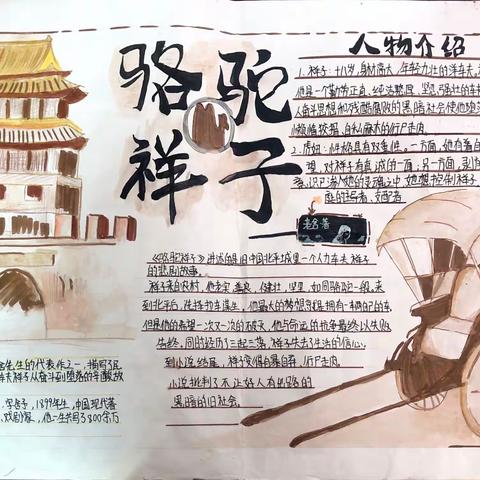 骆驼
祥子
老舍 著
人物介绍
1、祥子:十八岁,身材高大,年轻力壮的洋车夫,
他是一个勤劳正直、
人奋斗思想和残酷腐败的黑暗社会使他
自私麻木的行尸走肉。
2、虎妞:性格具有双重性,一方面,她有着自
望,对祥子有真诚的一面;另一方面,剥削
意识已渗入她的灵魂之中,她想控制祥子
庭的主宰者、支配者
《骆驼祥子》讲述的是旧中国北平城里一个人力车夫祥子
的悲剧故事。
祥子来自农村,他老实、善良、健壮、坚毅,如同骆驼一般,来
到北平后,选择拉车谋生,他最大的梦想就是拥有一辆自己的车,
但是他的希望一次又一次的破灭,他与命运的抗争最终以失败
告终,同时经历三起三落,祥子失去了生活的信心。
到小说结尾,祥子变得自暴自弃,行尸走肉。
小说批判了不让好人有出路的
黑暗的旧社会。
生的代表作之一,描写了民
车夫祥子从奋斗到堕落的辛酸故
字舍予,1899年生,中国现代著
、戏剧家,他一生共写了800余万